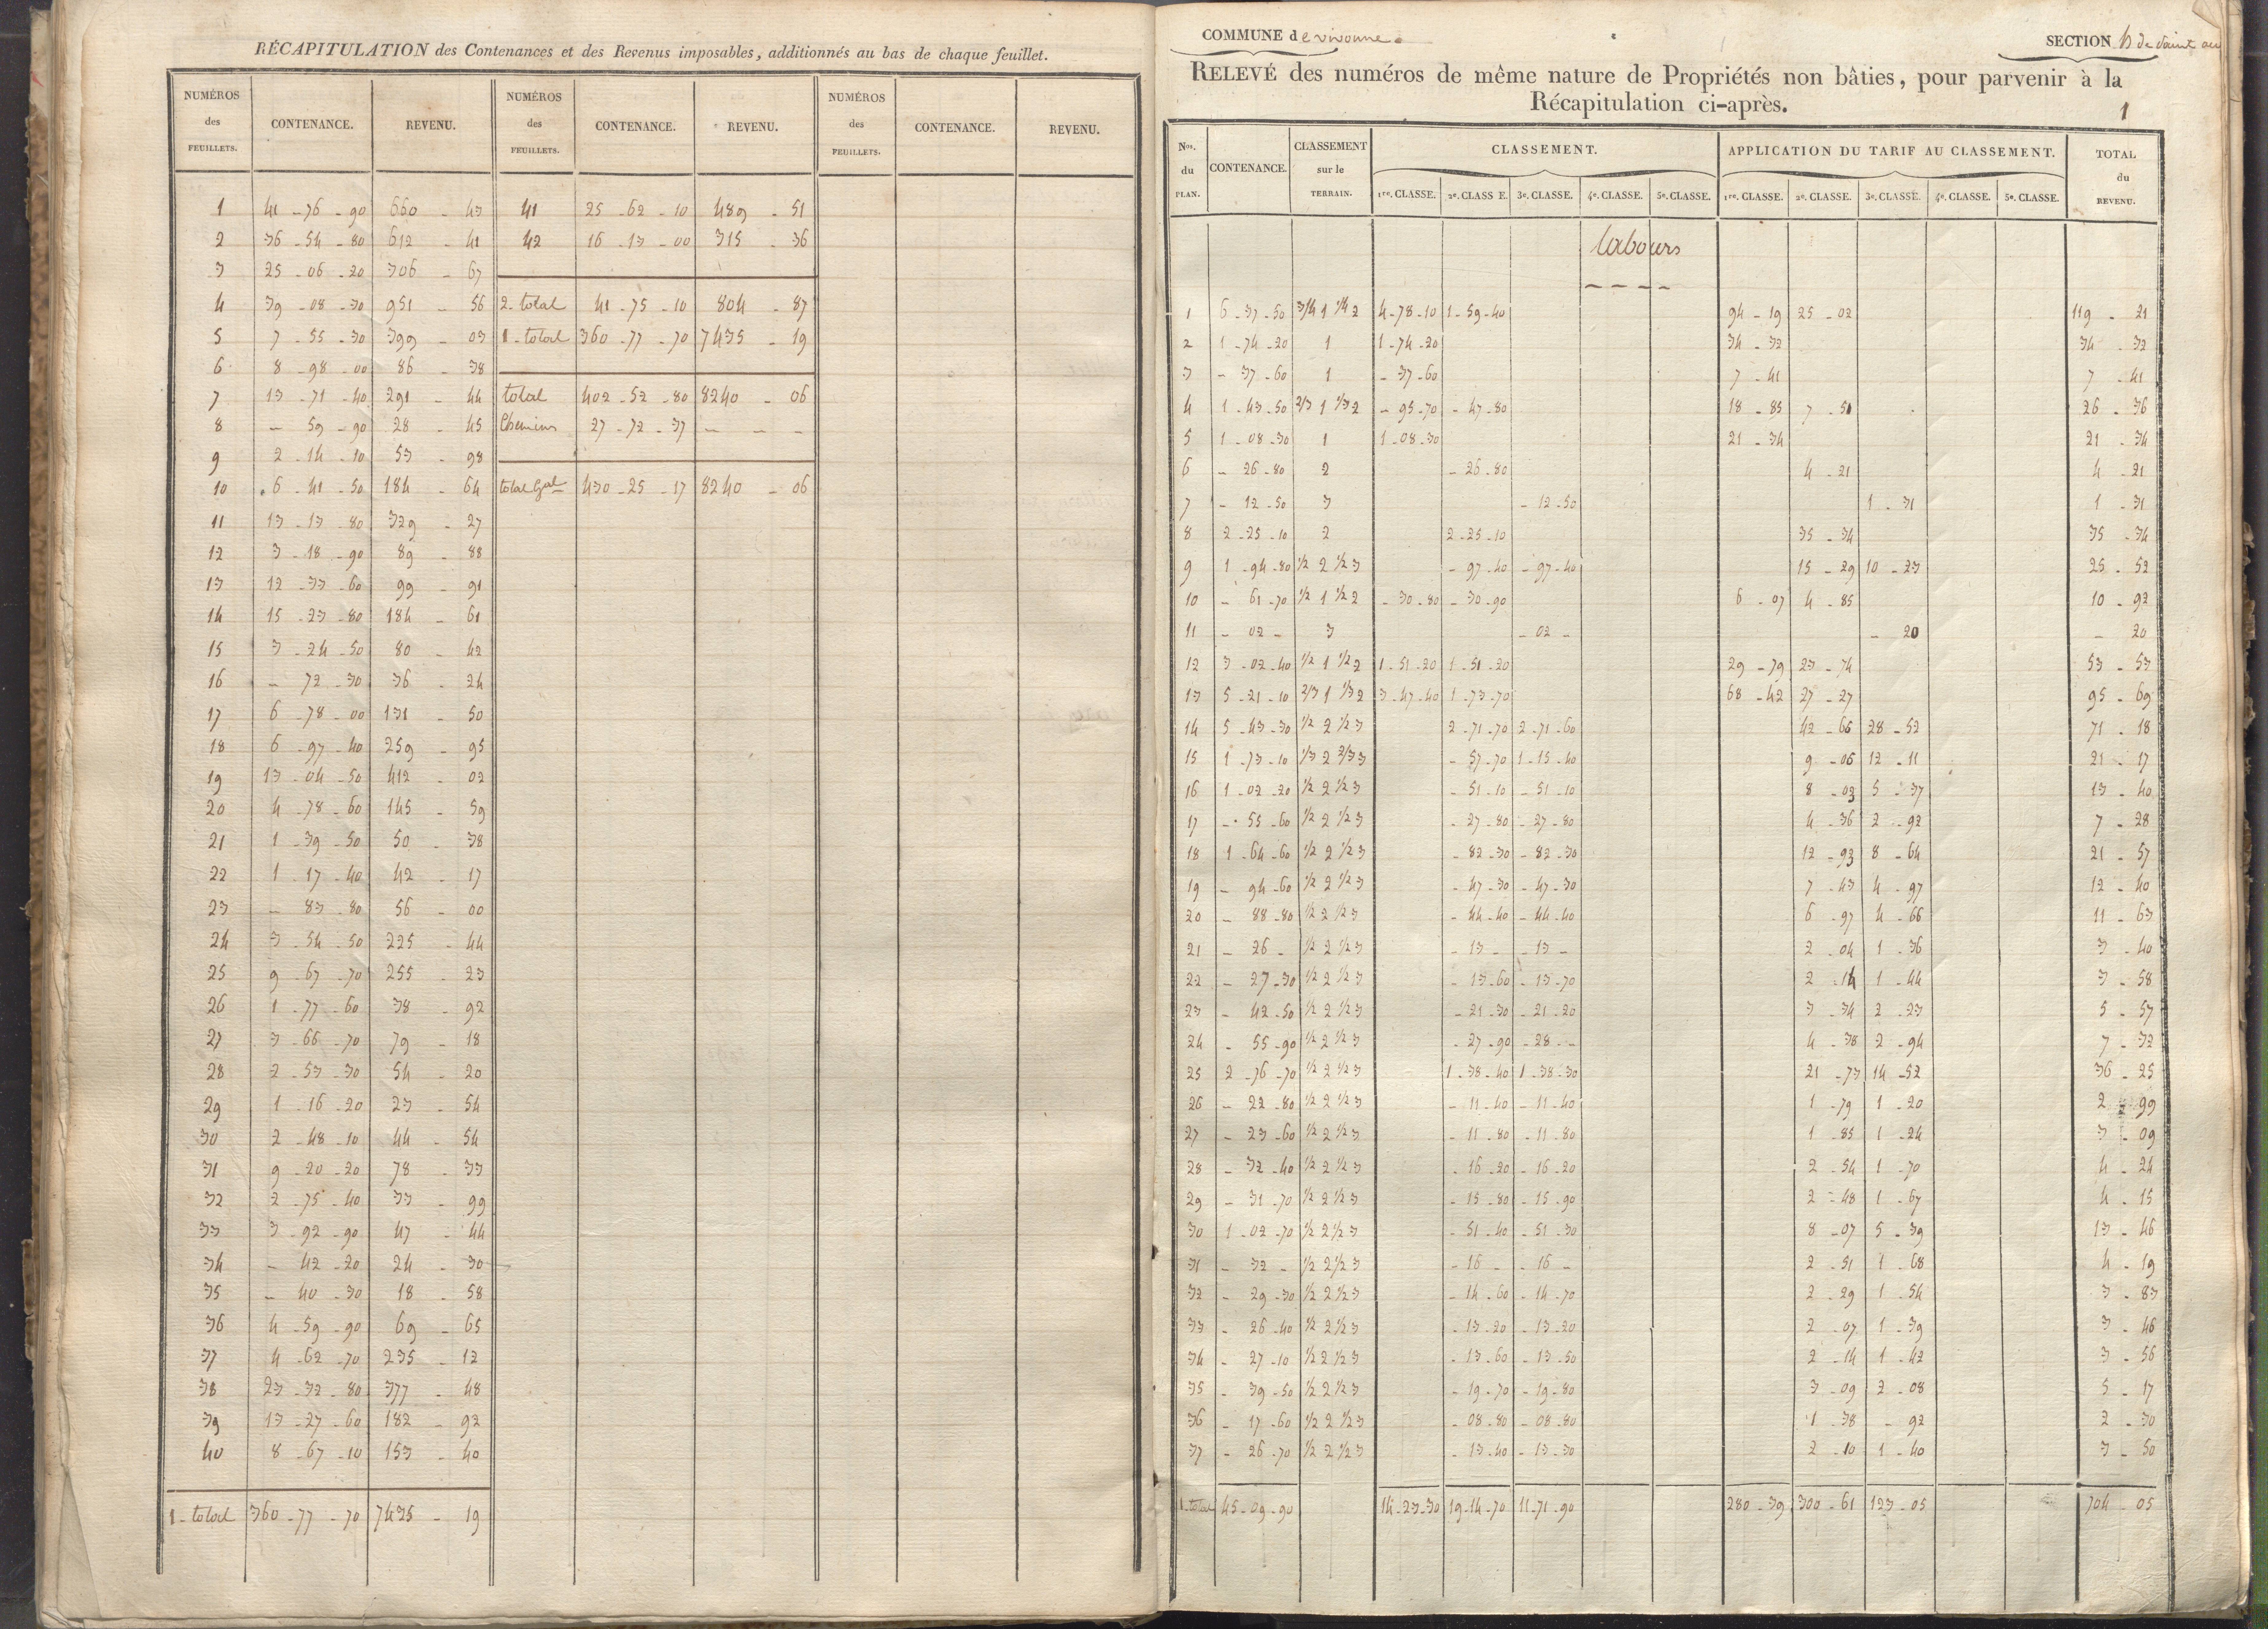 RÉCAPITULATION des Contenances et des Revenus imposables, additionnés au bas de chaque feuillet.
NUMÉROS des FEUILLETS. CONTENANCE. REVENU. NUMÉROS des FEUILLETS. CONTENANCE. REVENU. NUMÉROS des FEUILLETS. CONTENANCE. REVENU.
1 41 - 76 - 90 660 - 43 41 25 - 62 - 10 489 - 51
2 36 - 54 - 80 612 - 41 42 16 - 13 - 00 315 - 36
3 25 - 06 - 20 306 - 67
4 39 - 08 - 30 951 - 56 2 - total 41 - 75 - 10 804 - 87
5 7 - 55 - 30 399 - 03 1 - total 360 - 77 - 70 7435 - 19
6 8 - 98 - 00 86 - 38
7 13 - 71 - 40 291 - 44 total 402 - 52 - 80 8240 - 06
8 - 59 - 90 28 - 45 Chemins 27 - 72 - 37 - - -
9 2 - 14 - 10 53 - 98
10 6 - 41 - 50 184 - 64 total Gal 430 - 25 - 17 8240 - 06
11 13 - 13 - 80 329 - 27
12 3 - 18 - 90 89 - 88
13 12 - 33 - 60 99 - 91
14 15 - 23 - 80 184 - 61
15 3 - 24 - 50 80 - 42
16 - 72 - 30 36 - 24
17 6 - 78 - 00 131 - 50
18 6 - 97 - 40 259 - 95
19 13 - 04 - 50 412 - 02
20 4 - 78 - 60 145 - 59
21 1 - 39 - 50 50 - 38
22 1 - 17 - 40 42 - 17
23 - 83 - 80 56 - 00
24 3 - 54 - 50 225 - 44
25 9 - 67 - 70 255 - 23
26 1 - 77 - 60 38 - 92
27 3 - 66 - 70 79 - 18
28 2 - 53 - 30 54 - 20
29 1 - 16 - 20 23 - 54
30 2 - 48 - 10 44 - 54
31 9 - 20 - 20 78 - 33
32 2 - 75 - 40 33 - 99
33 3 - 92 - 90 47 - 44
34 - 42 - 20 24 - 30
35 - 40 - 30 18 - 58
36 4 - 59 - 90 69 - 65
37 4 - 62 - 70 235 - 12
38 23 - 32 - 80 377 - 48
39 13 - 27 - 60 182 - 92
40 8 - 67 - 10 153 - 40
1 - total 360 - 77 - 70 7435 - 19
COMMUNE de vivonne. SECTION de Saint
RELEVÉ des numéros de même nature de Propriétés non bâties, pour parvenir à la
Récapitulation ci-après. 1
Nos. du PLAN. CONTENANCE. CLASSEMENT sur le TERRAIN. CLASSEMENT. APPLICATION DU TARIF AU CLASSEMENT. TOTAL du REVENU.
1re. CLASSE. 2e. CLASSE. 3e. CLASSE. 4e. CLASSE. 5e. CLASSE. 1re. CLASSE. 2e. CLASSE. 3e. CLASSE. 4e. CLASSE. 5e. CLASSE.
labours
1 6 - 37 - 50 3/4 1 1/4 2 4 - 78 - 10 1 - 59 - 40 94 - 19 25 - 02 119 - 21
2 1 - 74 - 20 1 1 - 74 - 20 34 - 32 34 - 32
3 - 37 - 60 1 - 37 - 60 7 - 41 7 - 41
4 1 - 43 - 50 2/3 1 1/3 2 - 95 - 70 - 47 - 80 18 - 85 7 - 51 26 - 36
5 1 - 08 - 30 1 1 - 08 - 30 21 - 34 21 - 34
6 - 26 - 80 2 - 26 - 80 4 - 21 4 - 21
7 - 12 - 50 3 - 12 - 50 1 - 31 1 - 31
8 2 - 25 - 10 2 2 - 25 - 10 35 - 34 35 - 34
9 1 - 94 - 80 1/2 2 1/2 3 - 97 - 40 - 97 - 40 15 - 29 10 - 23 25 - 52
10 - 61 - 70 1/2 1 1/2 2 - 30 - 80 - 30 - 90 6 - 07 4 - 85 10 - 92
11 - 02 - 3 - 02 - - 20 - 20
12 3 - 02 - 40 1/2 1 1/2 2 1 - 51 - 20 1 - 51 - 20 29 - 79 23 - 74 53 - 53
13 5 - 21 - 10 2/3 1 1/3 2 3 - 47 - 40 1 - 73 - 70 68 - 42 27 - 27 95 - 69
14 5 - 43 - 30 1/2 2 1/2 3 2 - 71 - 70 2 - 71 - 60 42 - 66 28 - 52 71 - 18
15 1 - 73 - 10 1/3 2 2/3 3 - 57 - 70 1 - 15 - 40 9 - 06 12 - 11 21 - 17
16 1 - 02 - 20 1/2 2 1/2 3 - 51 - 10 - 51 - 10 8 - 03 5 - 37 13 - 40
17 - 55 - 60 1/2 2 1/2 3 - 27 - 80 - 27 - 80 4 - 36 2 - 92 7 - 28
18 1 - 64 - 60 1/2 2 1/2 3 - 82 - 30 - 82 - 30 12 - 93 8 - 64 21 - 57
19 - 94 - 60 1/2 2 1/2 3 - 47 - 30 - 47 - 30 7 - 43 4 - 97 12 - 40
20 - 88 - 80 1/2 2 1/2 3 - 44 - 40 - 44 - 40 6 - 97 4 - 66 11 - 63
21 - 26 - 1/2 2 1/2 3 - 13 - - 13 - 2 - 04 1 - 36 3 - 40
22 - 27 - 30 1/2 2 1/2 3 - 13 - 60 - 13 - 70 2 - 14 1 - 44 3 - 58
23 - 42 - 50 1/2 2 1/2 3 - 21 - 30 - 21 - 20 3 - 34 2 - 23 5 - 57
24 - 55 - 90 1/2 2 1/2 3 - 27 - 90 - 28 - - 4 - 38 2 - 94 7 - 32
25 2 - 76 - 70 1/2 2 1/2 3 1 - 38 - 40 1 - 38 - 30 21 - 73 14 - 52 36 - 25
26 - 22 - 80 1/2 2 1/2 3 - 11 - 40 - 11 - 40 1 - 79 1 - 20 2 - 99
27 - 23 - 60 1/2 2 1/2 3 - 11 - 80 - 11 - 80 1 - 85 1 - 24 3 - 09
28 - 32 - 40 1/2 2 1/2 3 - 16 - 20 - 16 - 20 2 - 54 1 - 70 4 - 24
29 - 31 - 70 1/2 2 1/2 3 - 15 - 80 - 15 - 90 2 - 48 1 - 67 4 - 15
30 1 - 02 - 70 1/2 2 1/2 3 - 51 - 40 - 51 - 30 8 - 07 5 - 39 13 - 46
31 - 32 - 1/2 2 1/2 3 - 16 - - 16 - 2 - 51 1 - 68 4 - 19
32 - 29 - 30 1/2 2 1/2 3 - 14 - 60 - 14 - 70 2 - 29 1 - 54 3 - 83
33 - 26 - 40 1/2 2 1/2 3 - 13 - 20 - 13 - 20 2 - 07 1 - 39 3 - 46
34 - 27 - 10 1/2 2 1/2 3 - 13 - 60 - 13 - 50 2 - 14 1 - 42 3 - 56
35 - 39 - 50 1/2 2 1/2 3 - 19 - 70 - 19 - 80 3 - 09 2 - 08 5 - 17
36 - 17 - 60 1/2 2 1/2 3 - 08 - 80 - 08 - 80 1 - 38 - 92 2 - 30
37 - 26 - 70 1/2 2 1/2 3 - 13 - 40 - 13 - 30 2 - 10 1 - 40 3 - 50
1 - total 45 - 09 - 90 14 - 23 - 30 19 - 14 - 70 11 - 71 - 90 280 - 39 300 - 61 123 - 05 704 - 05